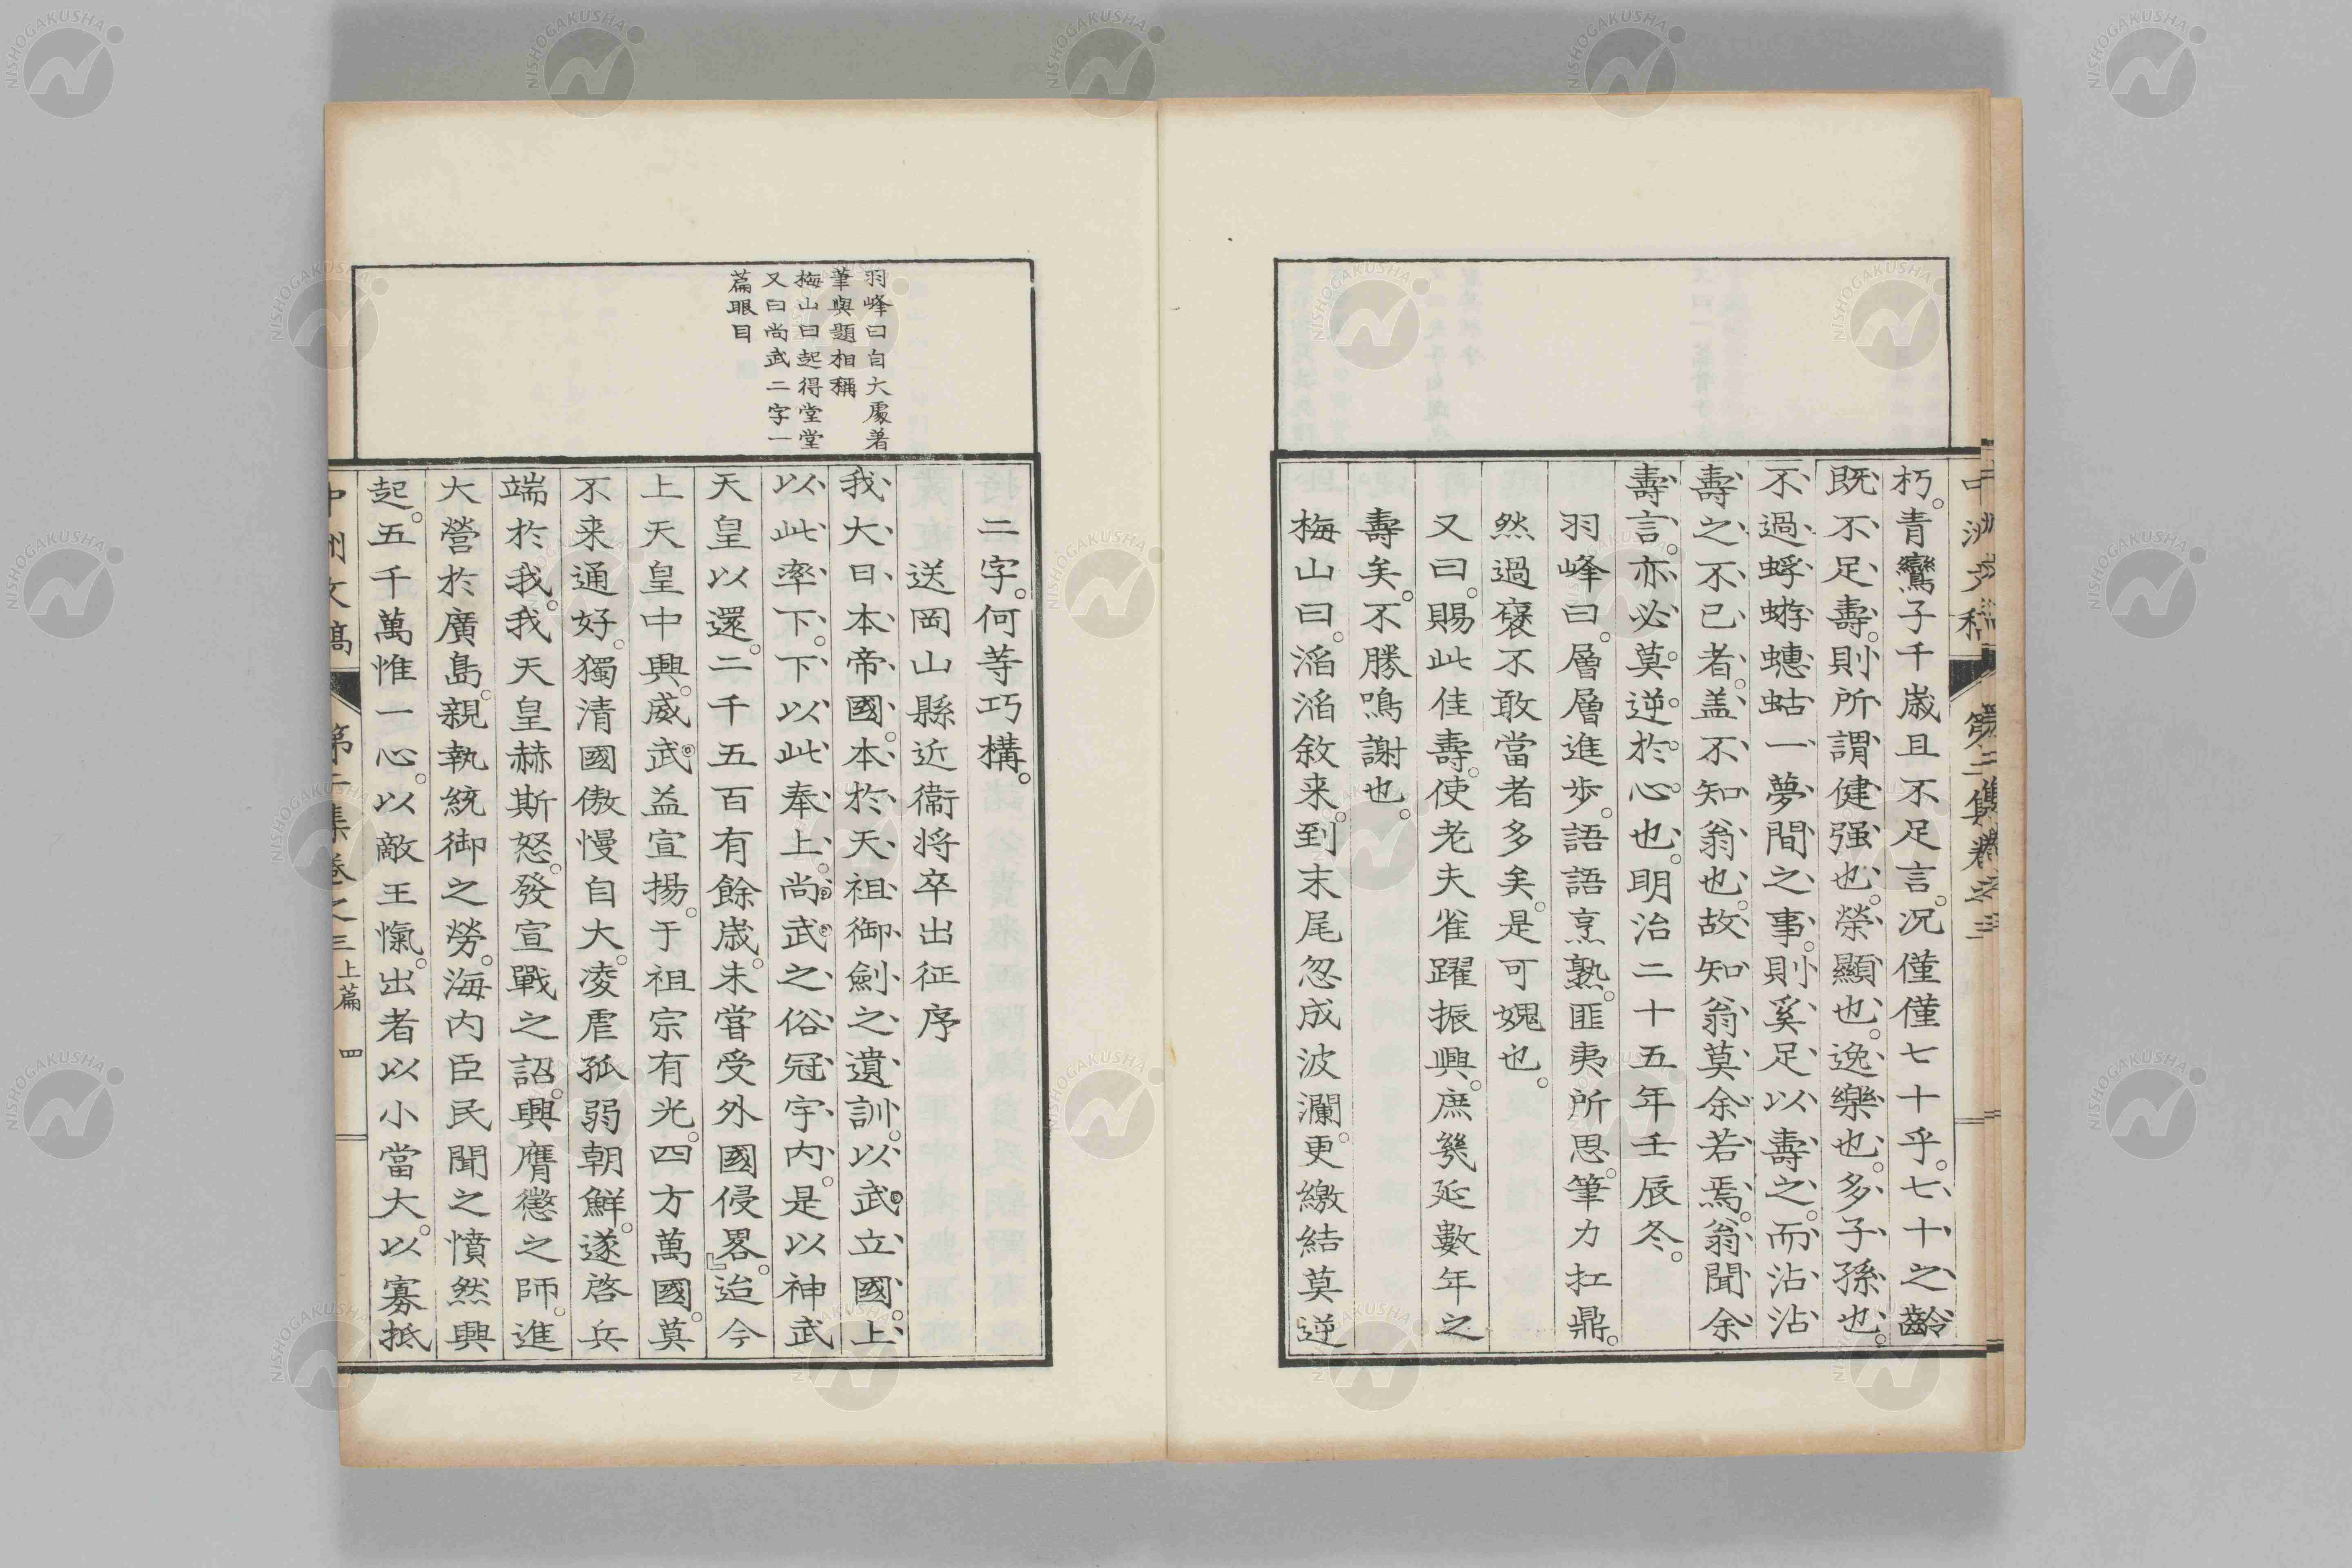 朽。青鸞子千歳且不足言。況僅僅七十乎。七十之齡
既不足壽。則所謂健强也。榮顯也。逸樂也。多子孫也。
不過蜉蝣蟪蛄一夢間之事。則奚足以壽之。而沾沾
壽之不已者。盖不知翁也。故知翁莫余若焉。翁聞余
壽言。亦必莫逆於心也。明治二十五年壬辰冬。
羽峰曰。層層進歩。語語烹熟。匪夷所思。筆力扛鼎。
然過襃不敢當者多矣。是可媿也。
又曰。賜此佳壽。使老夫雀躍振興。庶幾延數年之
壽矣。不勝鳴謝也。
梅山曰。滔滔敘来。到末尾忽成波瀾。更繳結莫逆
二字。何等巧構。
送岡山縣近衞将卒出征序
我大日本帝國。本於天祖御劍之遺訓。以武立國。上
以此率下。下以此奉上。尚武之俗冠宇内。是以神武
天皇以還。二千五百有餘歳。未甞受外國侵畧。』迨今
上天皇中興。威武益宣揚。于祖宗有光。四方萬國。莫
不来通好。獨清國傲慢自大。凌虐孤弱朝鮮。遂啓兵
端於我。我天皇赫斯怒。發宣戰之詔。興膺懲之師。進
大營於廣島。親執統御之勞。海内臣民聞之憤然興
起。五千萬惟一心。以敵王愾。出者以小當大。以寡抵
羽峰曰自大處著
筆與題相稱
梅山曰起得堂堂
又曰尚武二字一
篇眼目
中洲文稿 第三集卷之三 上篇 四
NISHOGAKUSHA